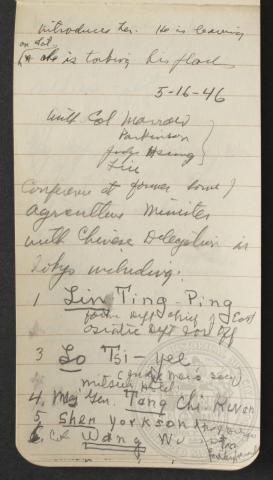 introduces her. He is leaving
on Sat.
& she is taking his place
5-16-46
with Col Morrow
Parkinson
Judge Hsiang
Liu
Conference at former home of
agriculture minister
with Chinese Delegation in
Tokyo including:
1 Lin Ting-Ping
form Dept chief of East
asiatic Dept For Off
3 Lo Tsi-yee
(Judge Mei's secy)
4. Maj Gen. Tang Chi Kwen
5 Shen york son
6. Col Wang Wu